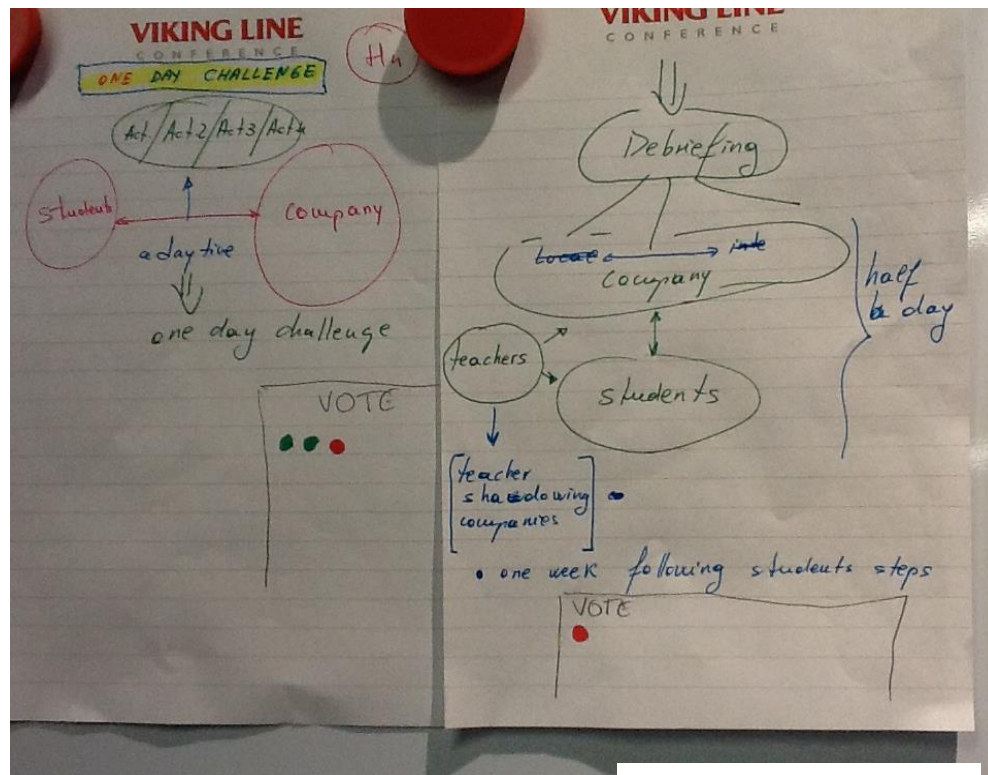 VIKING LINE
CONFERENCE
ONE DAY CHALLENGE
Act/Act2/Act3/Act4
students
company
a day tive
one day challenge
VOTE
VIKING LINE
CONFERENCE
Debriefing
company
half
day
teachers
students
teacher
shadowing
companies
• one week following students steps
VOTE